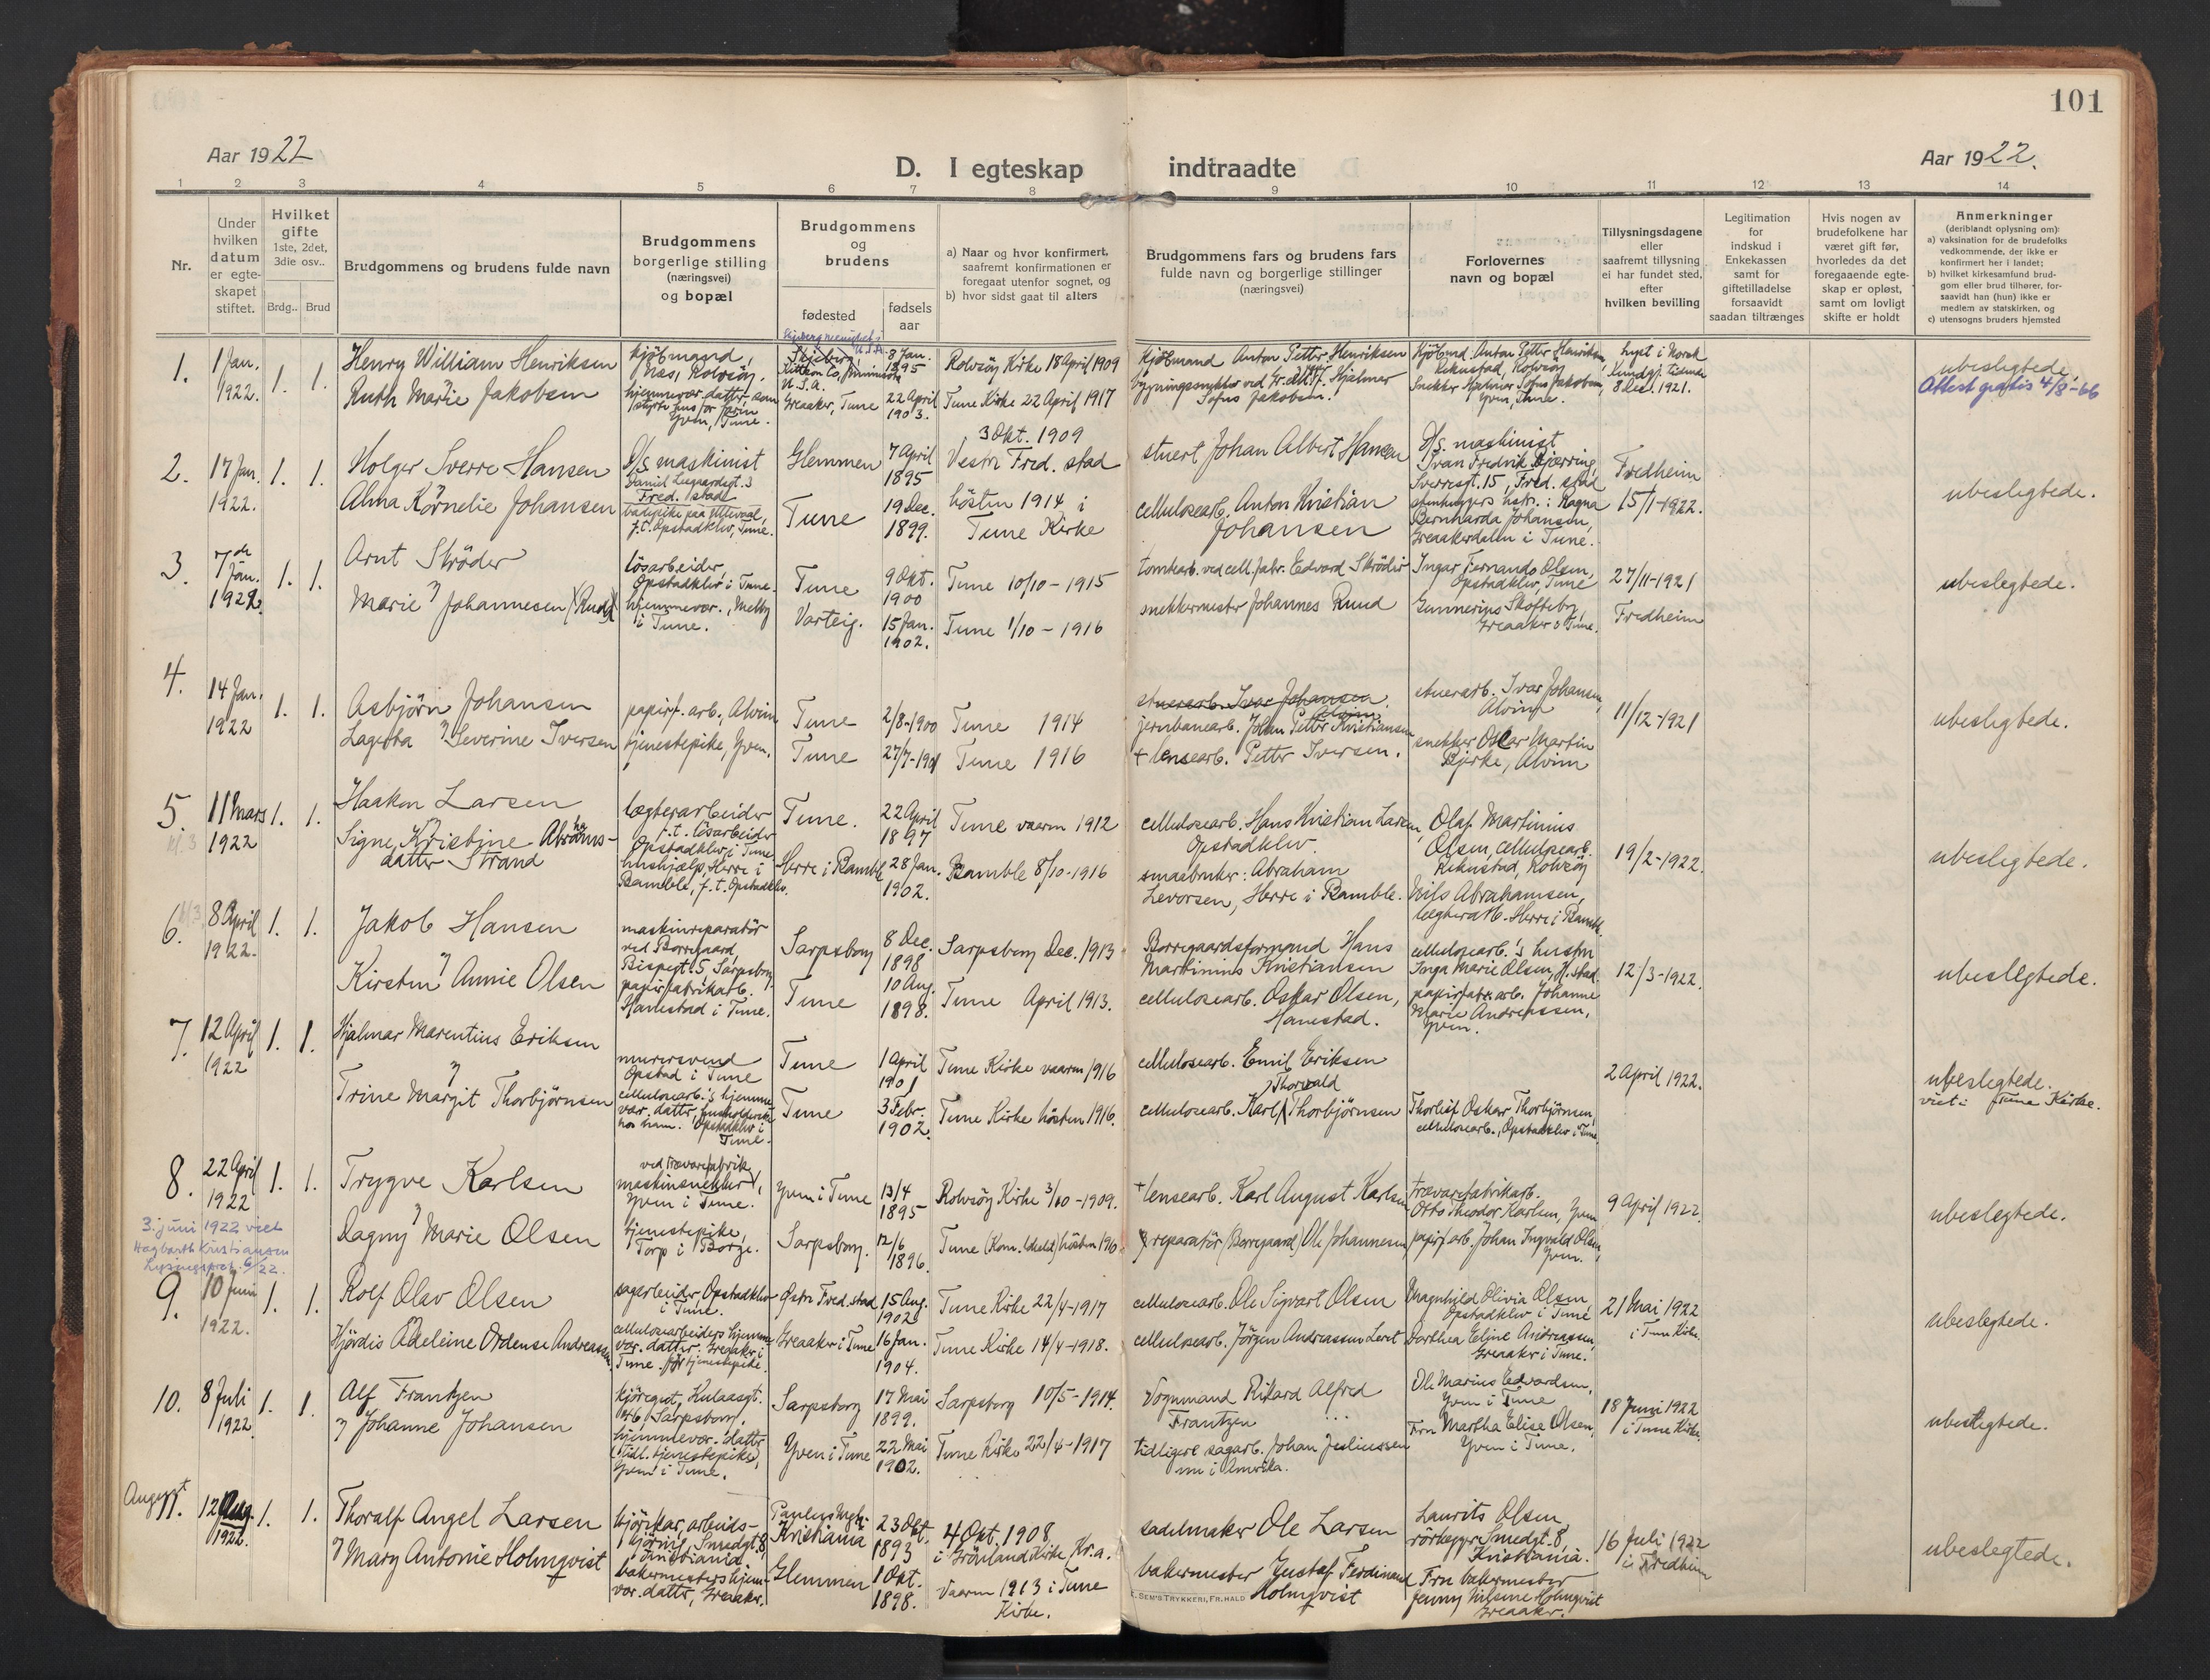 101
Aar 1922
D. I egteskap indtraadte
Aar 1922.
1 2 3 4 5 6 7 8 9 10 11 12 13 14
Nr.
Under hvilken datum er egteskapet stiftet.
Hvilket gifte 1ste, 2det, 3die osv..
Brdg.. Brud
Brudgommens og brudens fulde navn
Brudgommens borgerlige stilling (næringsvei) og bopæl
Brudgommens og brudens
fødested
fødsels aar
a) Naar og hvor konfirmert, saafremt konfirmationen er foregaat utenfor sognet, og
b) hvor sidst gaat til alters
Brudgommens fars og brudens fars fulde navn og borgerlige stillinger (næringsvei)
Forlovernes navn og bopæl
Tillysningsdagene eller saafremt tillysning ei har fundet sted, efter hvilken bevilling
Legitimation for indskud i Enkekassen samt for giftetilladelse forsaavidt saadan tiltrænges
Hvis nogen av brudefolkene har været gift før, hvorledes da det foregaaende egteskap er opløst, samt om lovligt skifte er holdt
Anmerkninger
(deriblandt oplysning om):
a) vaksination for de brudefolks vedkommende, der ikke er konfirmert her i landet;
b) hvilket kirkesamfund brudgom eller brud tilhører, forsaavidt han (hun) ikke er medlem av statskirken, og
c) utensogns bruders hjemsted
1. 1 Jan. 1922. 1. 1.
Henry William Henriksen
Ruth Marie Jakobsen
kjöbmand, Næs, Rolvsöy.
hjemmevær. datter, som styrte hus for farin Yven, Tune.
Skjeberg, Kittson Co, Minnisota U.S.A. 8 Jan. 1895
Greaaker, Tune 22 April 1903.
Rolvsöy Kirke 18 April 1909
Tune Kirke 22 April 1917
Kjöbmand Anton Petter Henriksen
bygningssnekker Hjalmar Sofus Jakobsen.
Kjöbmd. Anton Petter Henriksen, Rolvsöy
Snekker Hjalmar Sofus Jakobsen, Yven, Tune.
lyst i Norsk 8 Des. 1921.
ubeslegtede,
Attest gratis 4/8-66
2. 17 Jan. 1922. 1. 1.
Holger Sverre Hansen
Alma Kornelie Johansen
D/s maskinist
Fred.stad
Opstadklev, Tune.
Glemmen 7 April 1895
Tune 19 Dec. 1899.
3 Okt. 1909 Vestre Fred.stad
hösten 1914 i Tune Kirke
stuert Johan Albert Hansen
cellulosearb. Anton Kristian Johansen
D/s. maskinist Ivan Fredrik Bjerring, Sverresgt. 15, Fred.stad
Ragna Bernharda Johansen, Greaakerdalen i Tune.
Fredheim 15/1-1922.
ubeslegtede.
3. 7de Jan. 1922. 1. 1.
Arnt Ströder
Marie Johannesen (Ruud)
lösarbeider, Opstadklev i Tune.
hjemmevær., Melby i Tune.
Tune 9 Okt. 1900
Varteig. 15 Jan. 1902.
Tune 10/10 - 1915
Tune 1/10 - 1916
tomtearb. ved cell.fabr. Edvard Ströder
snekkermester Johannes Ruud
Ingar Fernando Olsen, Opstadklev, Tune
Gunnerius Skofteby, Greaaker i Tune.
27/11-1921
Fredheim
ubeslegtede.
4. 14 Jan. 1922 1. 1.
Asbjörn Johansen
Lagerta Severine Iversen
papirf. arb., Alvim
tjenestepike, Yven.
Tune 2/8-1900
Tune 27/7-1901
Tune 1914
Tune 1916
stuerarb. Ivar Johansen, Alvim
jernbanearb. Johan Petter Kristiansen
+ lensearb. Petter Iversen.
stuerarb. Ivar Johansen, Alvim
snekker Oskar Martin Bjerke, Alvim
11/12-1921
ubeslegtede.
5. 11 Mars 1922 1. 1.
Haakon Larsen
Signe Kristine Abrahamsdatter Strand
lægterarbeider f.t. lösarbeider Opstadklev i Tune
hushjælp, Herre i Bamble, f.t. Opstadklev.
Tune. 22 April 1897
Herre i Bamble 28 Jan. 1902.
Tune vaaren 1912
Bamble 8/10-1916
cellulosearb. Hans Kristian Larsen, Opstadklev.
smaabruker: Abraham Levorsen, Herre i Bamble.
Olaf Martinius Olsen, cellulosearb. Rolvsöy
Nils Abrahamsen, lægterarb. Herre i Bamble.
19/2-1922.
ubeslegtede.
6. 8 April 1922. 1. 1.
Jakob Hansen
Kirsten Annie Olsen
maskinreparatör ved Borregaard, Bispegt. 5, Sarpsborg.
papirfabrikarb. Hanestad i Tune.
Sarpsborg 8 Dec. 1898
Tune 10 Aug. 1898.
Sarpsborg Dec. 1913
Tune April 1913.
Borregaardsformand Hans Martinius Kristiansen
cellulosearb. Oskar Olsen, Hanestad.
cellulosearb.'s hustru Inga Marie Olsen, H.stad.
papirfabr.arb. Johanne Marie Andreassen, Yven.
12/3-1922.
ubeslegtede.
7. 12 April 1922 1. 1.
Hjalmar Marentius Eriksen
Trine Margit Thorbjörnsen
murersvend Opstad i Tune
cellulosearb.'s hjemmevær. datter, husholderske hos ham. Opstadklev i Tune.
Tune 1 April 1901
Tune 3 Febr. 1902.
Tune Kirke vaaren 1916
Tune Kirke hösten 1916.
cellulosearb. Emil Eriksen
cellulosearb. Karl Thorvald Thorbjörnsen
Thorleif Oskar Thorbjörnsen, cellulosearb., Opstadklev i Tune.
2 April 1922.
ubeslegtede.
viet i Tune Kirke.
8. 22 April 1922 1. 1.
Trygve Karlsen
Dagny Marie Olsen
ved trævarefabrik maskinsnekker, Yven i Tune.
tjenestepike, Torp i Borge.
Yven i Tune 13/4 1895
Sarpsborg. 12/6 1896.
Rolvsöy Kirke 3/10-1909.
+ lensearb. Karl August Karlsen
reparatör (Borregaard) Ole Johannesen
trævarefabrikarb. Otto Theodor Karlsen, Yven
papirf.arb. Johan Ingvald Olsen, Yven.
9 April 1922.
ubeslegtede.
3. juni 1922 viet
Hagbarth Kristiansen
Lysningsprot. 6/22.
9. 10 Juni 1922. 1. 1.
Rolf Olav Olsen
Hjördis Adeleine Ordense Andreassen
sagarbeider Opstadklev i Tune.
cellulosearbeiders hjemmevær. datter. Greaaker i Tune. för tjenestepike.
Østre Fred.stad 15 Aug. 1902
Greaaker i Tune 16 Jan. 1904.
Tune Kirke 22/4-1917
Tune Kirke 14/4-1918.
cellulosearb. Ole Sigvart Olsen
cellulosearb. Jörgen Andreassen
Magnhild Olivia Olsen, Opstadklev i Tune
Dorthea Eline Andreassen, Greaaker i Tune.
21 Mai 1922 i Tune Kirke.
ubeslegtede.
10. 8 Juli 1922. 1. 1.
Alf Frantzen
Johanne Johansen
kjöregut, Kulaasgt. Sarpsborg.
hjemmevær. datter (tidl. tjenestepike), Yven i Tune.
Sarpsborg 17 Mai 1899.
Yven i Tune 22 Mai 1902.
Sarpsborg 10/5-1914.
Tune Kirke 22/4-1917
Vognmand Rikard Alfred Frantzen
tidligere sagarb. Johan Juliussen nu i Amerika.
Ole Marius Edvardsen, Yven i Tune
Fru Martha Elise Olsen, Yven i Tune.
18 Juni 1922 i Tune Kirke.
ubeslegtede.
August
11. 12 Aug. 1922. 1. 1.
Thoralf Angel Larsen
Mary Antonie Holmqvist
Smedgt. 8, Kristiania
bakermesters hjemvær. datter, Greaaker.
Paulus Mgh. Kristiania 23 Okt. 1893
Glemmen 1 Okt. 1898.
4 Okt. 1908 i Grönland Kirke, Kr.a.
Vaaren 1913 i Tune Kirke.
sadelmaker Ole Larsen
bakermester Gustaf Ferdinand Holmqvist
Laurits Olsen, rörlegger Smedgt. 8, Kristiania.
Fru bakermester Jenny Nilsine Holmqvist Greaaker.
16 Juli 1922 i Fredheim
ubeslegtede.
E. SEM'S TRYKKERI, FR.HALD